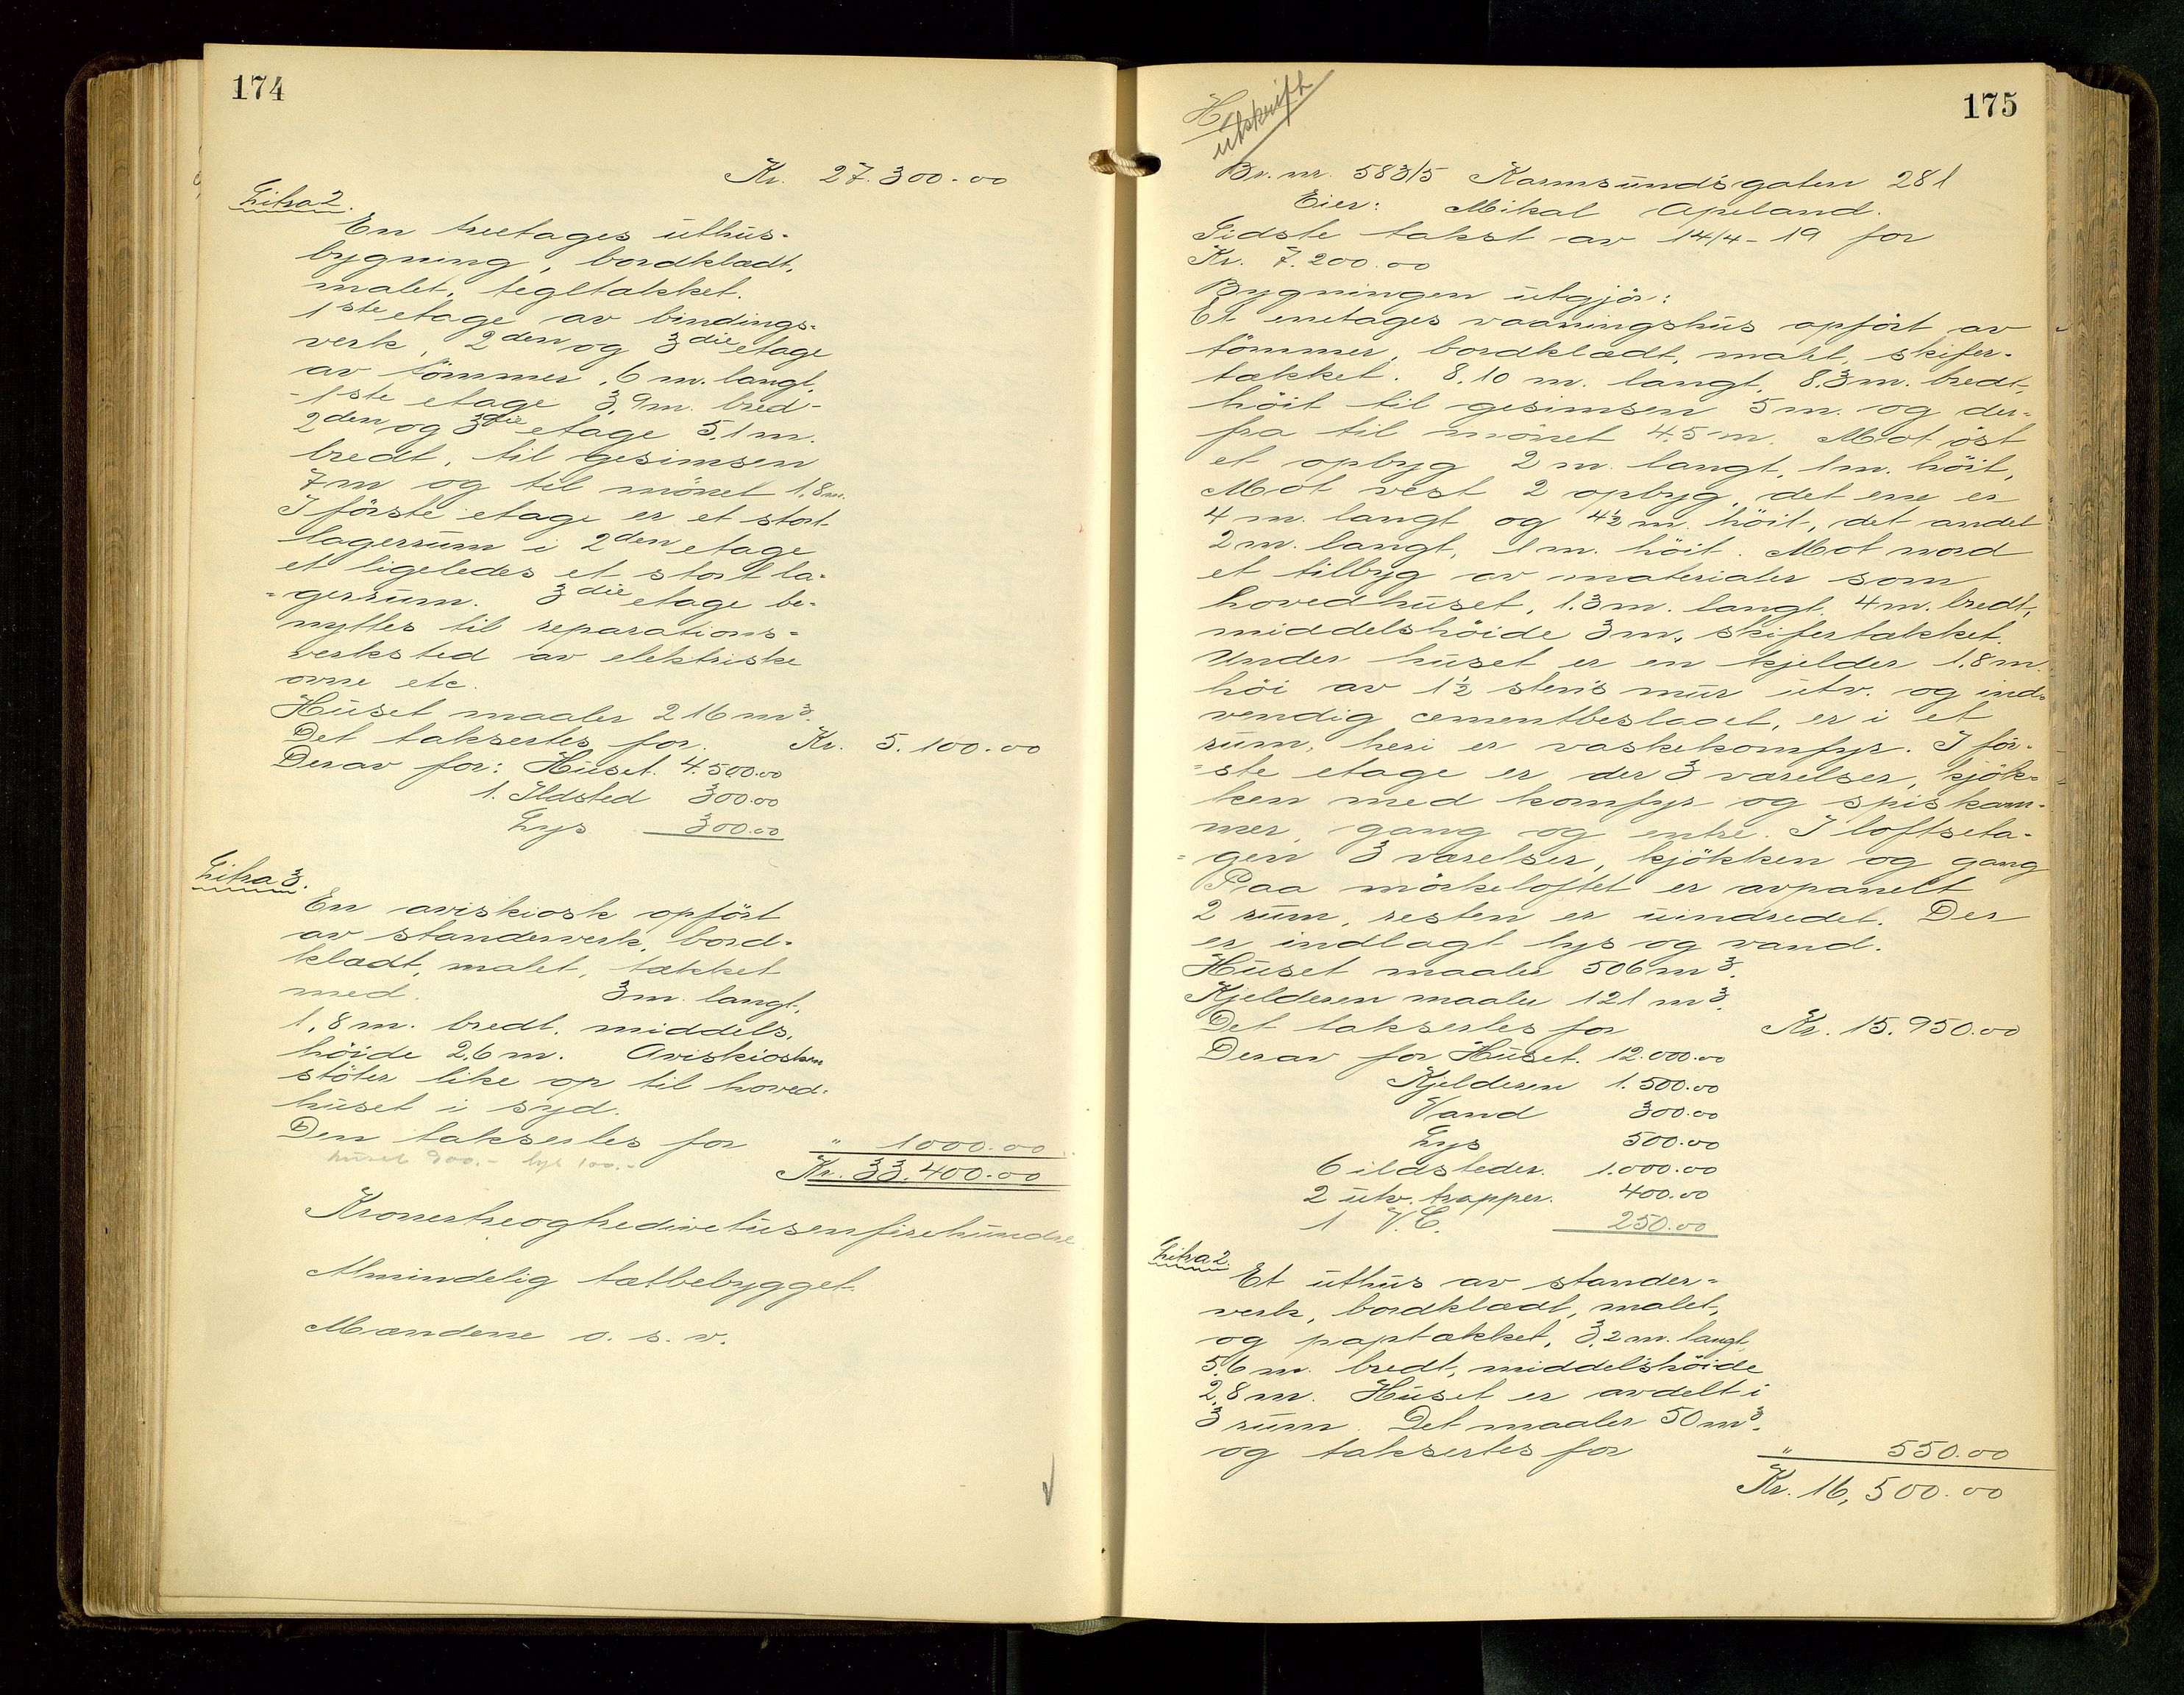 174
Kr. 27.300.00
Litra 2.
En treetages uthus-
bygning, bordklædt,
malet, tegltækket.
1ste etage av bindings-
verk, 2den og 3die etage
av tömmer, 6 m. langt,
1ste etage 3,9 m. bred-
2den og 3die etage 5.1 m.
bredt, til gesimsen
7 m og til mönet 1,8 m.
I förste etage er et stort
lagerrum i 2den etage
et ligeledes et stort la-
gerrum. 3die etage be-
nyttes til reparations-
verksted av elektriske
ovne etc.
Huset maaler 216 m3.
Det taksertes for. Kr. 5.100.00
Derav for: Huset. 4.500.00
1. Ildsted 300.00
Lys 300.00
Litra 3.
En aviskiosk opfört
av standerverk, bord-
klædt, malet, tækket
med. 3 m. langt,
1,8 m. bredt, middels,
höide 2,6 m. Aviskiosken
stöter like op til hoved-
huset i syd.
Den taksertes for " 1000.00
huset 900.- lys 100.-
Kr. 33.400.00
Kronertreogtredivetusenfirehundre
Almindelig tætbebygget.
Mændene o. s. v.
175
H
utskrift
Br. nr. 583/5 Karmsundsgaten 281
Eier: Mikal Apeland.
Sidste takst av 14/4-19 for
Kr. 7.200.00
Bygningen utgjör:
Et enetages vaaningshus opfört av
tömmer, bordklædt, malet, skifer-
tækket. 8,10 m. langt, 8.3 m. bredt,
höit til gesimsen 5 m. og der-
fra til mönet 4.5 m. Mot öst
et opbyg 2 m. langt, 1 m. höit,
Mot vest 2 opbyg, det ene er
4 m. langt og 4½ m. höit, det andet
2 m. langt, 1 m. höit. Mot nord
et tilbyg av materialer som
hovedhuset, 1.3 m. langt, 4 m. bredt,
middelshöide 3 m, skifertækket.
Under huset er en kjelder 1.8 m.
höi av 1½ stens mur utv. og ind-
vendig cementbeslaaet, er i et
rum, heri er vaskekomfyr. I för-
ste etage er der 3 værelser, kjök-
ken med komfyr og spiskam-
mer, gang og entre. I loftseta-
gen 3 værelser, kjökken og gang
Paa mörkeloftet er avpanelt
2 rum, resten er uindredet. Der
er indlagt lys og vand.
Huset maaler 506 m3.
Kjelderen maaler 121 m3.
Det taksertes for Kr. 15.950.00
Derav for Huset. 12.000.00
Kjelderen 1.500.00
Vand 300.00
Lys 500.00
6 ildsteder. 1.000.00
2 utv. trapper. 400.00
1 V.C. 250.00
Litra 2.
Et uthus av stander-
verk, bordklædt, malet,
og paptækket, 3,2 m. langt,
5,6 m. bredt, middelshöide
2,8 m. Huset er avdelt i
3 rum. Det maaler 50 m3.
og taksertes for " 550.00
Kr. 16,500.00